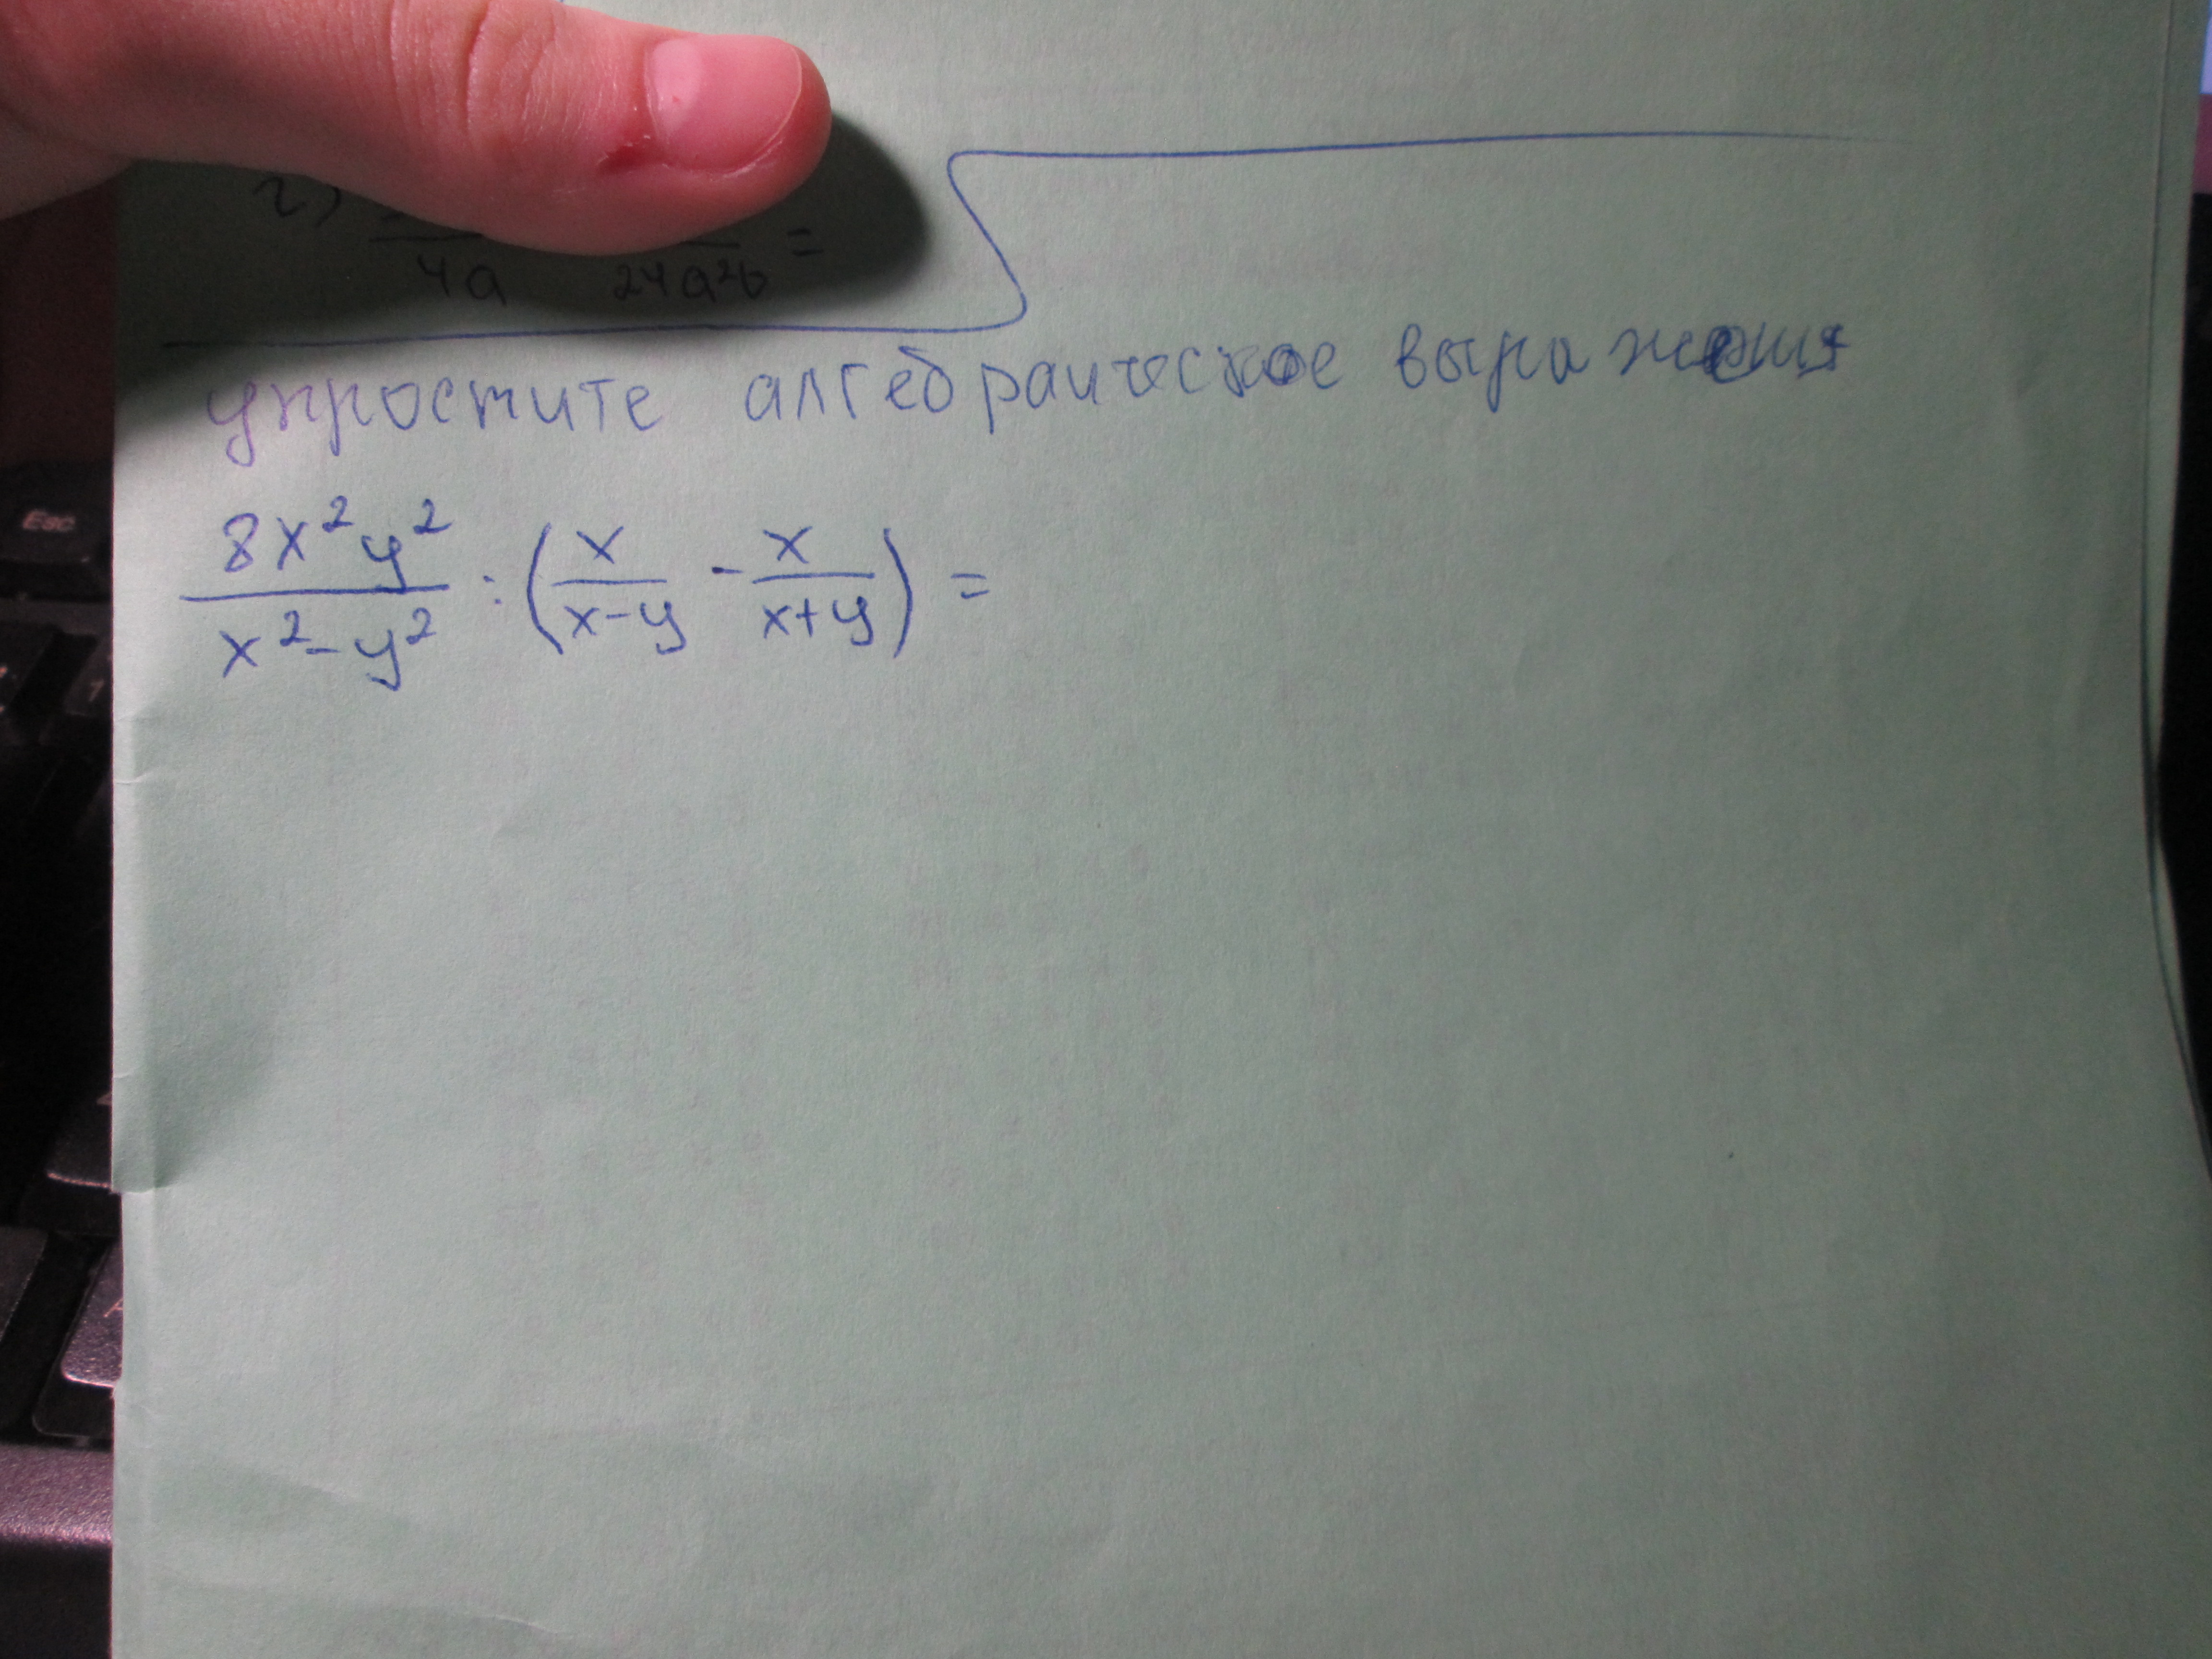 г) 4a 24a²b =
упростите алгебраическое выражения
8x²y² / x²-y² : (x / x-y - x / x+y) =
Esc